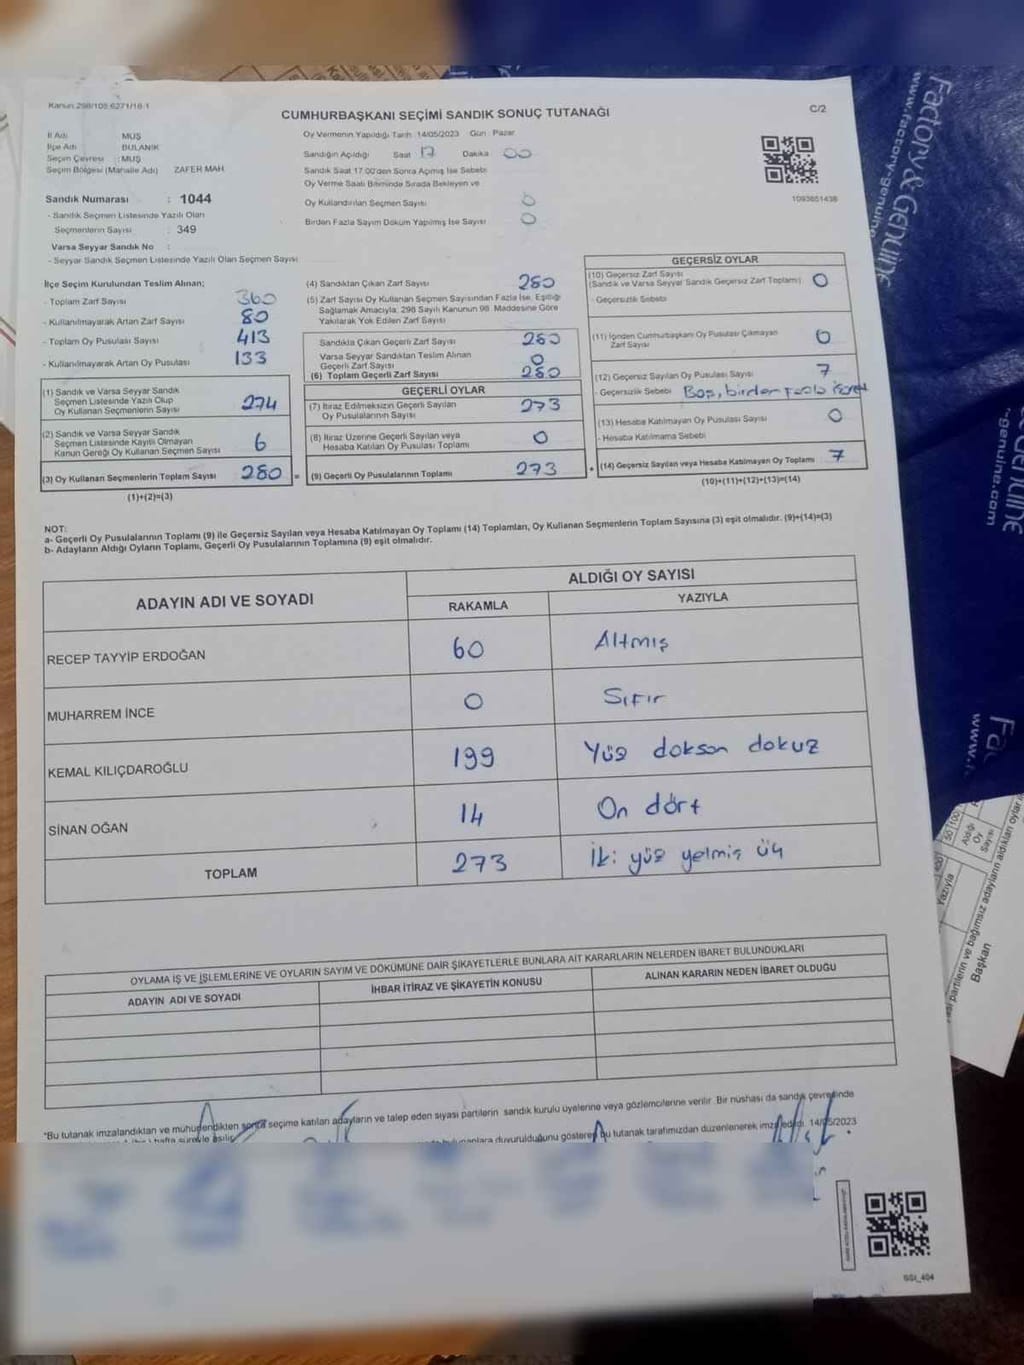 Kanun 298/105 6271/16-1
CUMHURBAŞKANI SEÇİMİ SANDIK SONUÇ TUTANAĞI
C/2
İl Adı MUŞ
İlçe Adı BULANIK
Seçim Çevresi : MUŞ
Seçim Bölgesi (Mahalle Adı) ZAFER MAH
Oy Vermenin Yapıldığı Tarih 14/05/2023 Gün : Pazar
Sandığın Açıldığı Saat 17 Dakika 00
Sandık Saat 17:00'den Sonra Açımış İse Sebebi
Oy Verme Saati Bitiminde Sırada Bekleyen ve
Oy Kullandırılan Seçmen Sayısı 0
Birden Fazla Sayım Döküm Yapılmış İse Sayısı 0
1093651438
Sandık Numarası : 1044
- Sandık Seçmen Listesinde Yazılı Olan
Seçmenlerin Sayısı : 349
Varsa Seyyar Sandık No :
- Seyyar Sandık Seçmen Listesinde Yazılı Olan Seçmen Sayısı
İlçe Seçim Kurulundan Teslim Alınan;
- Toplam Zarf Sayısı 360
- Kullanılmayarak Artan Zarf Sayısı 80
- Toplam Oy Pusulası Sayısı 413
- Kullanılmayarak Artan Oy Pusulası 133
(1) Sandık ve Varsa Seyyar Sandık
Seçmen Listesinde Yazılı Olup
Oy Kullanan Seçmenlerin Sayısı 274
(2) Sandık ve Varsa Seyyar Sandık
Seçmen Listesinde Kayıtlı Olmayan
Kanun Gereği Oy Kullanan Seçmen Sayısı 6
(3) Oy Kullanan Seçmenlerin Toplam Sayısı 280 =
(1)+(2)=(3)
(4) Sandıktan Çıkan Zarf Sayısı 280
(5) Zarf Sayısı Oy Kullanan Seçmen Sayısından Fazla İse, Eşitliği
Sağlamak Amacıyla, 298 Sayılı Kanunun 98. Maddesine Göre
Yakılarak Yok Edilen Zarf Sayısı
Sandıkta Çıkan Geçerli Zarf Sayısı 280
Varsa Seyyar Sandıktan Teslim Alınan
Geçerli Zarf Sayısı 0
(6) Toplam Geçerli Zarf Sayısı 280
GEÇERLİ OYLAR
(7) İtiraz Edilmeksizin Geçerli Sayılan
Oy Pusulalarının Sayısı 273
(8) İtiraz Üzerine Geçerli Sayılan veya
Hesaba Katılan Oy Pusulası Toplamı 0
(9) Geçerli Oy Pusulalarının Toplamı 273 +
GEÇERSİZ OYLAR
(10) Geçersiz Zarf Sayısı
(Sandık ve Varsa Seyyar Sandık Geçersiz Zarf Toplamı) 0
- Geçersizlik Sebebi
(11) İçinden Cumhurbaşkanı Oy Pusulası Çıkmayan
Zarf Sayısı 0
(12) Geçersiz Sayılan Oy Pusulası Sayısı 7
- Geçersizlik Sebebi Boş, birden fazla işaret
(13) Hesaba Katılmayan Oy Pusulası Sayısı 0
- Hesaba Katılmama Sebebi
(14) Geçersiz Sayılan veya Hesaba Katılmayan Oy Toplamı 7
(10)+(11)+(12)+(13)=(14)
NOT:
a- Geçerli Oy Pusulalarının Toplamı (9) ile Geçersiz Sayılan veya Hesaba Katılmayan Oy Toplamı (14) Toplamları, Oy Kullanan Seçmenlerin Toplam Sayısına (3) eşit olmalıdır. (9)+(14)=(3)
b- Adayların Aldığı Oyların Toplamı, Geçerli Oy Pusulalarının Toplamına (9) eşit olmalıdır.
ADAYIN ADI VE SOYADI
ALDIĞI OY SAYISI
RAKAMLA YAZIYLA
RECEP TAYYİP ERDOĞAN 60 Altmış
MUHARREM İNCE 0 Sıfır
KEMAL KILIÇDAROĞLU 199 Yüz doksan dokuz
SİNAN OĞAN 14 On dört
TOPLAM 273 İki yüz yetmiş üç
OYLAMA İŞ VE İŞLEMLERİNE VE OYLARIN SAYIM VE DÖKÜMÜNE DAİR ŞİKAYETLERLE BUNLARA AİT KARARLARIN NELERDEN İBARET BULUNDUKLARI
ADAYIN ADI VE SOYADI İHBAR İTİRAZ VE ŞİKAYETİN KONUSU ALINAN KARARIN NEDEN İBARET OLDUĞU
*Bu tutanak imzalandıktan ve mühürlendikten sonra seçime katılan adayların ve talep eden siyasi partilerin sandık kurulu üyelerine veya gözlemcilerine verilir. Bir nüshası da sandık çevresinde
hafta süreyle asılır. duyurulduğunu gösteren bu tutanak tarafımızdan düzenlenerek imza edildi. 14/05/2023
SSİ_404
Factory & Genuine
www.factory-genuine
-genuine.com
www.
Aldığı
Oy
Sayısı
50 100
Yazıyla
partilerin ve bağımsız adayların aldıkları oylar
Başkan